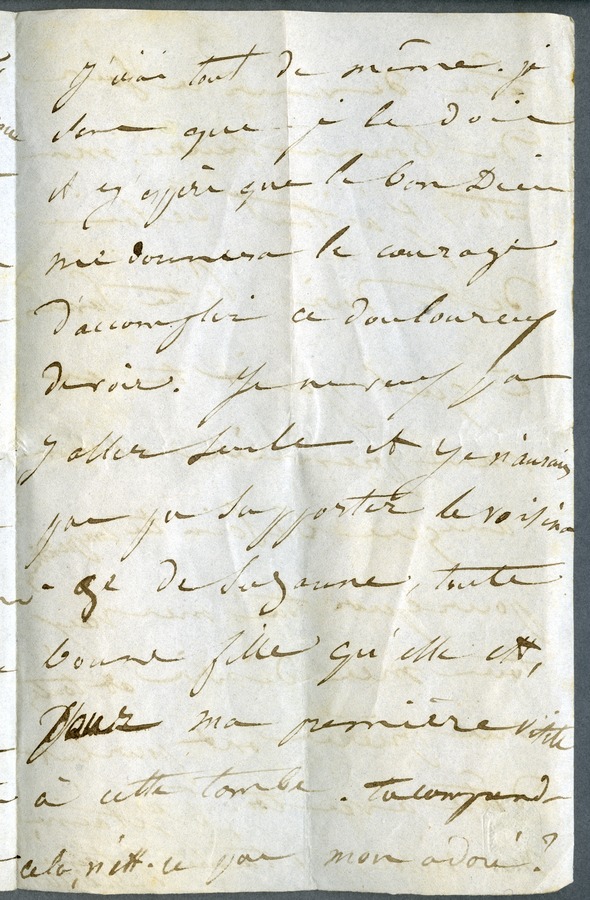 J'irai tout de même. je
sens que je le dois
et j'espère que le bon Dieu
me donnera le courage
d'accomplir ce douloureux
devoir. Je ne veux pas
y aller seule et je n'aurais
pas pu supporter le voisina
- ge de Suzanne, toute
bonne fille qu'elle est,
Pour ma première visite
à cette tombe. tu comprends
cela, n'est-ce pas mon adoré?